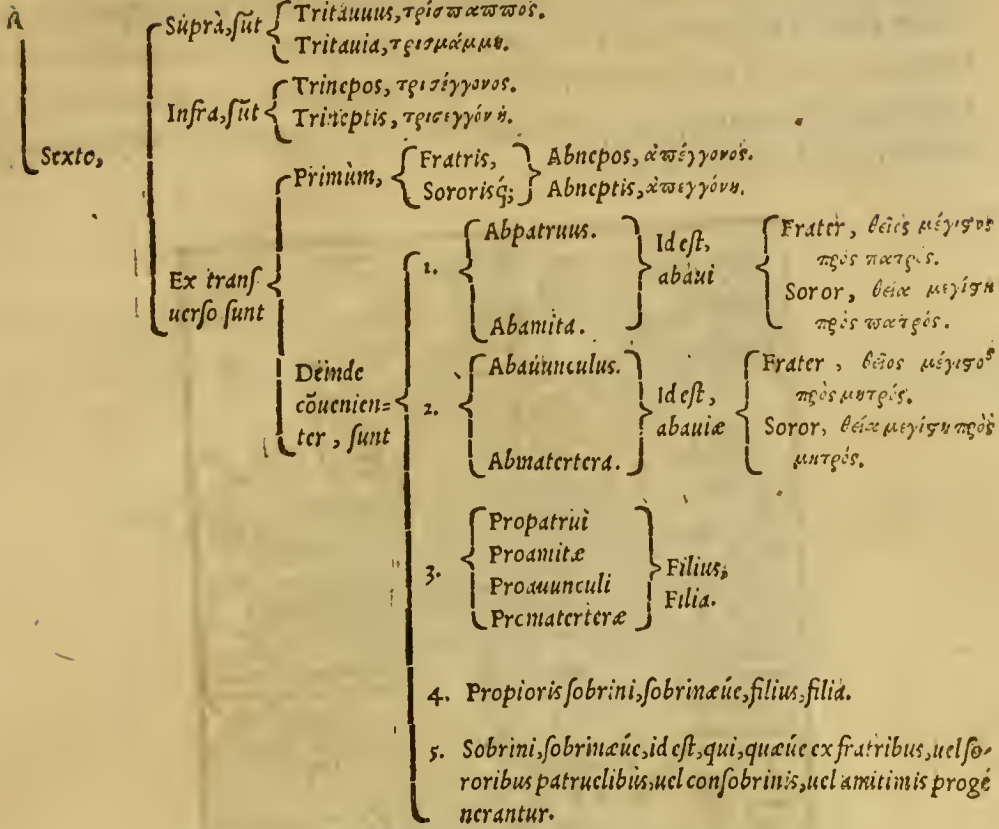 A
Sexto,
Suprà, sũt
Tritauuus, τρίσπαππος.
Tritauia, τρισμάμμη.
Infra, sũt
Trinepos, τρισέγγονος.
Trineptis, τρισεγγόνη.
Ex trans
uerso sunt
Primùm,
Fratris,
Sororisq́;
Abnepos, ἀπέγγονος.
Abneptis, ἀπεγγόνη.
Deinde
cõuenien=
ter, sunt
1.
Abpatruus.
Abamita.
Id est,
abaui
Frater, θεῖος μέγιστος
πρὸς πατρός.
Soror, θεία μεγίστη
πρὸς πατρός.
2.
Abauunculus.
Abmatertera.
Id est,
abauiæ
Frater, θεῖος μέγιστος
πρὸς μητρός.
Soror, θεία μεγίστη πρὸς
μητρός.
3.
Propatrui
Proamitæ
Proauunculi
Promaterteræ
Filius,
Filia.
4. Propioris sobrini, sobrinæúe, filius, filia.
5. Sobrini, sobrinæúe, id est, qui, quæúe ex fratribus, uel so-
roribus patruelibus, uel consobrinis, uel amitinis progé
nerantur.